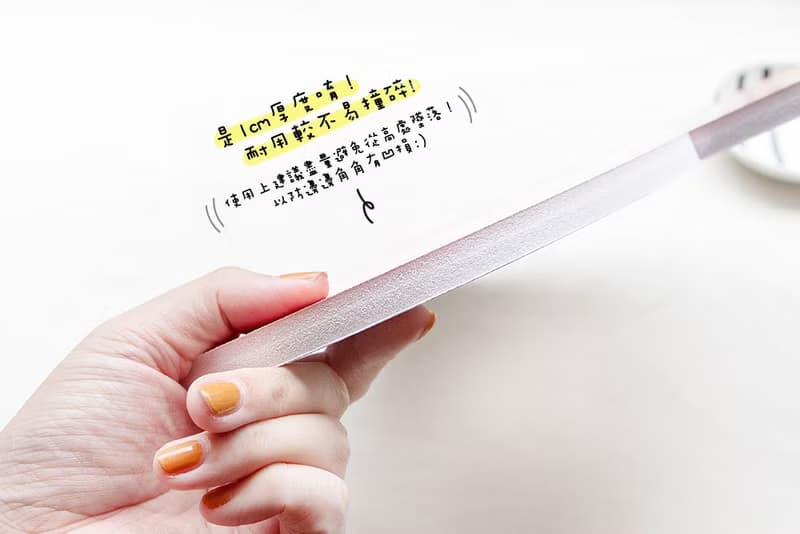 是1cm厚度唷！
耐用較不易撞碎！
使用上建議盡量避免從高處墜落！
以防邊邊角角有凹損:)